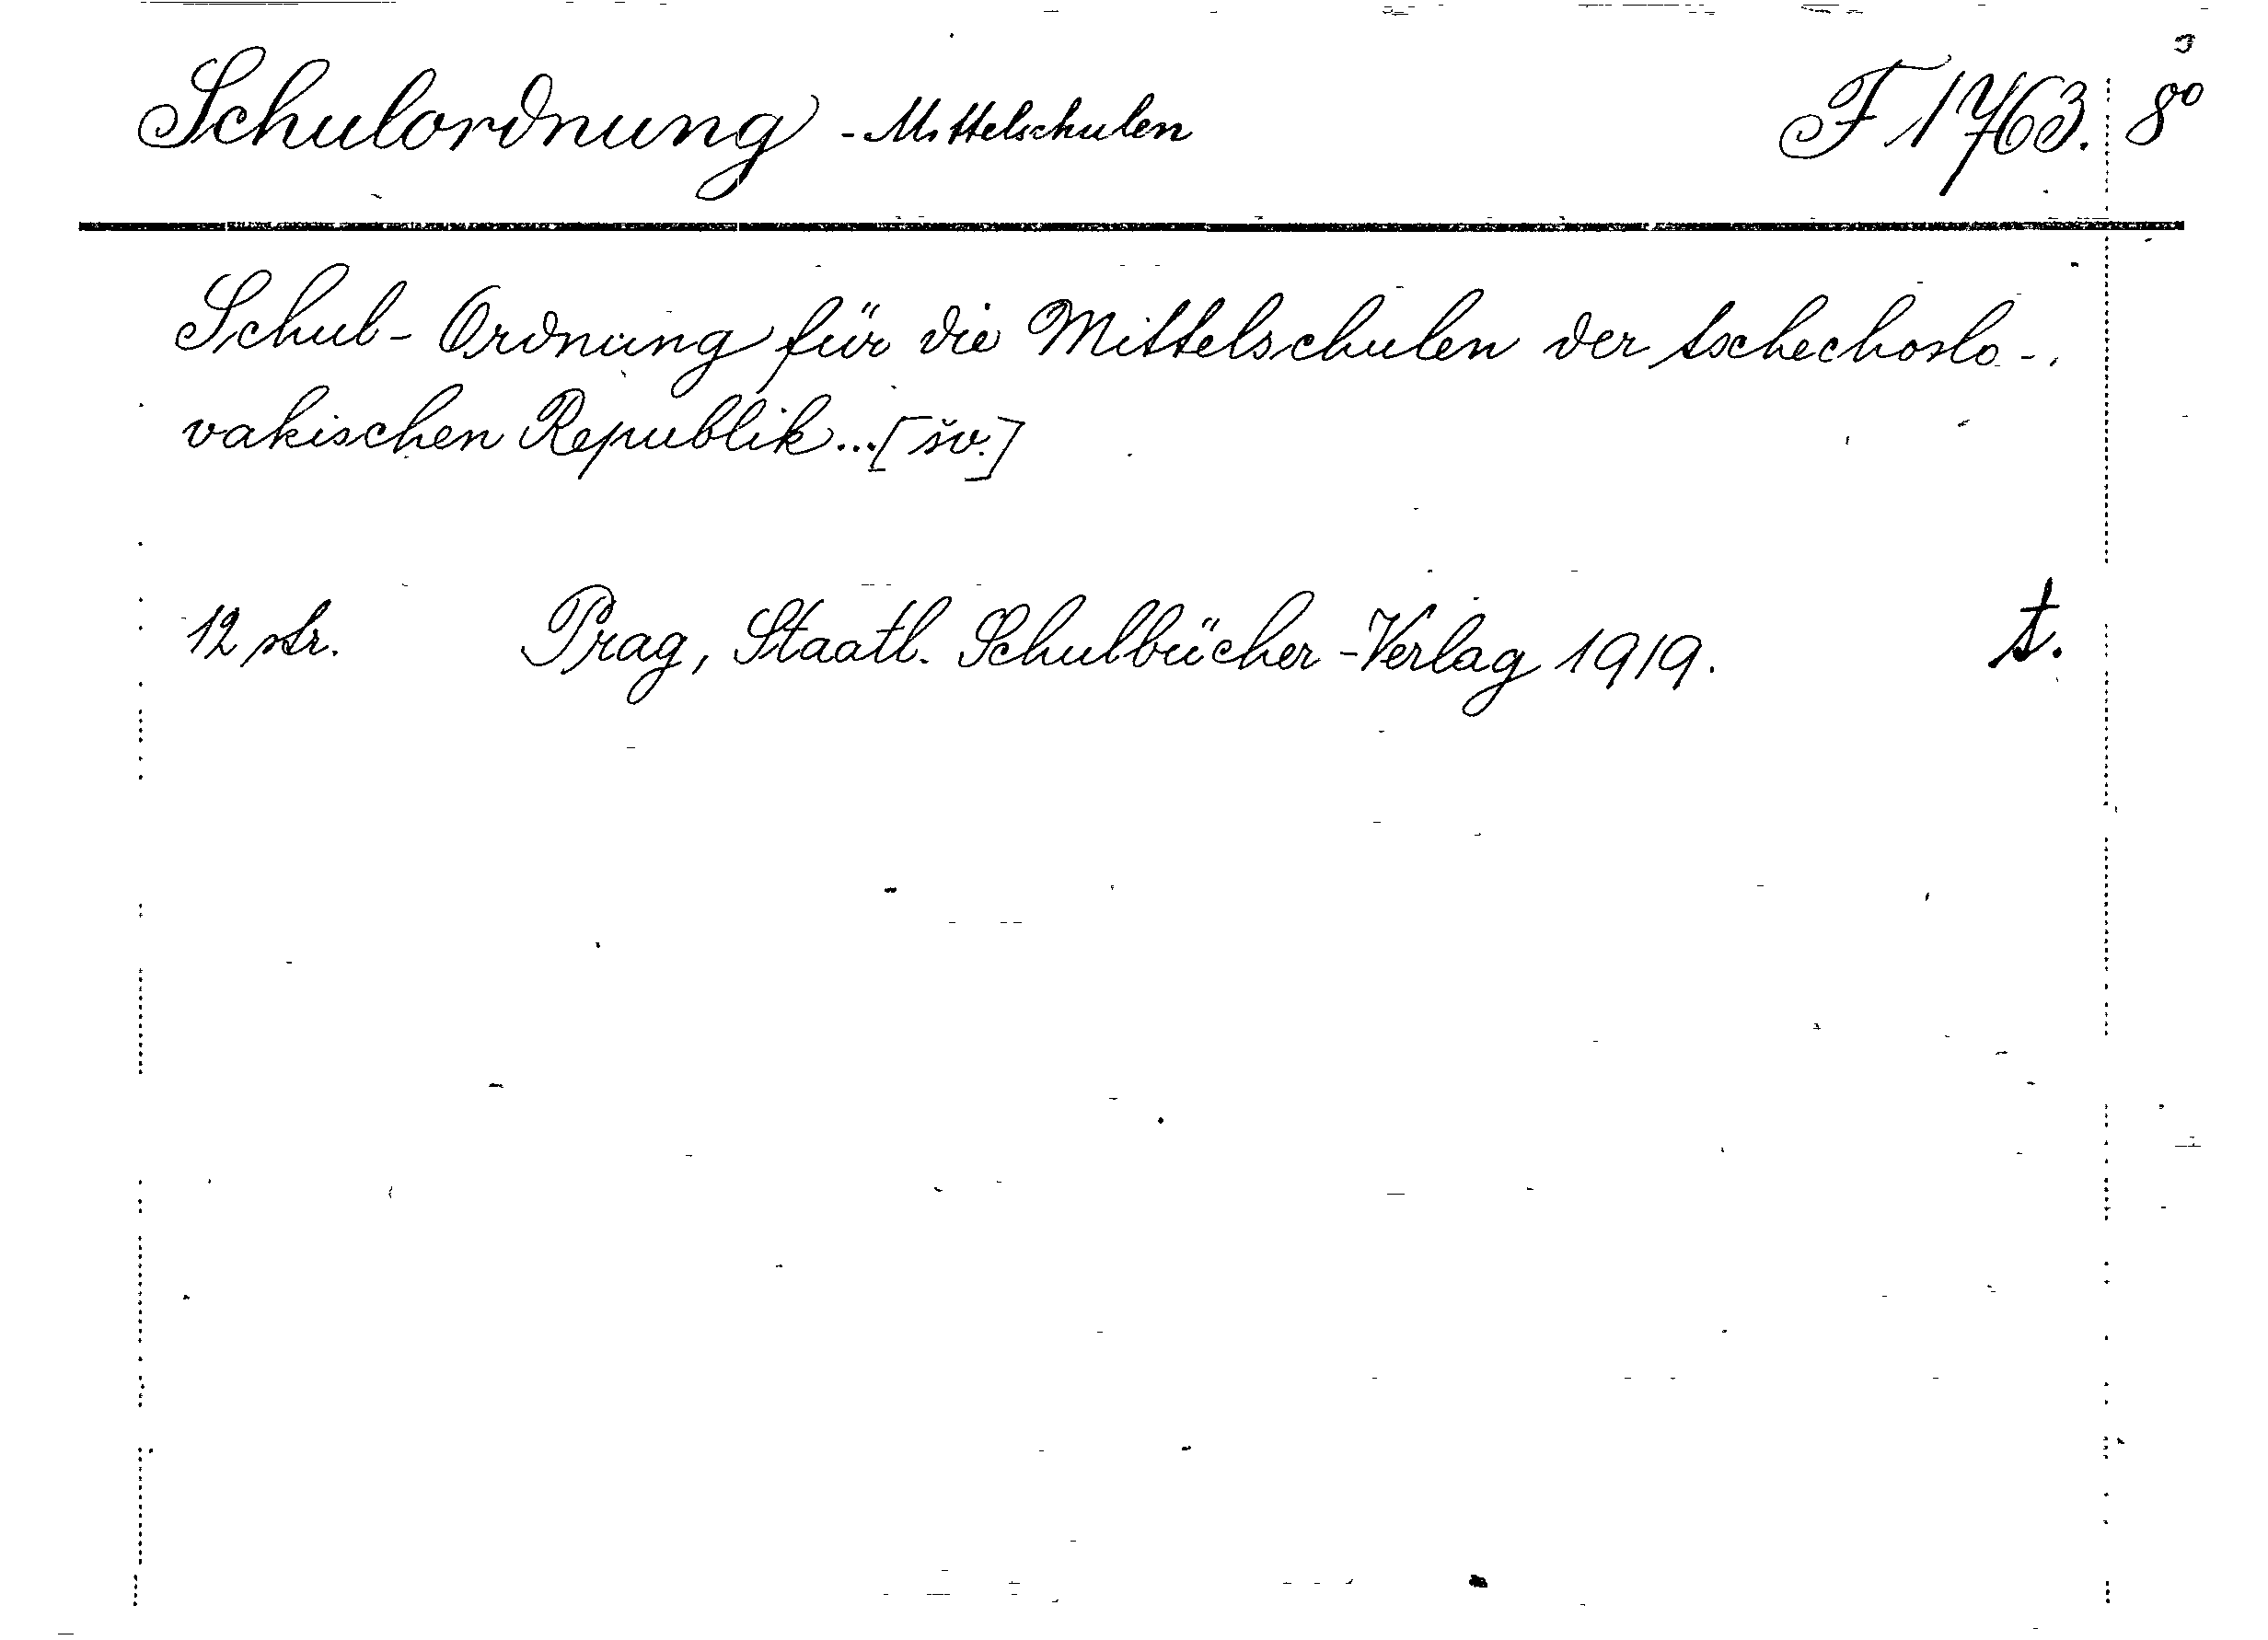 Schulordnung - Mittelschulen F 1763. 8°
Schul-Ordnung für die Mittelschulen der tschechoslo-
vakischen Republik...[šv.]
12 str. Prag, Staatl. Schulbücher-Verlag 1919. t.